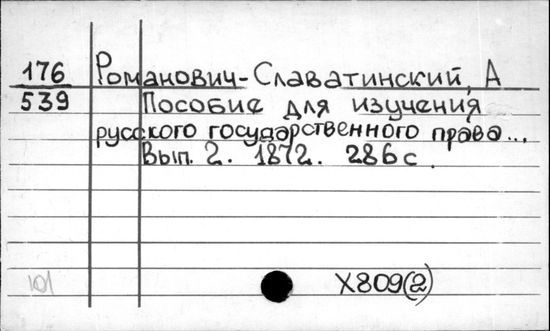 176 Романович-Славатинский, А
539 Пособие для изучения
русского государственного права...
Вып. 2. 1872. 286 с.
101 X809(2)